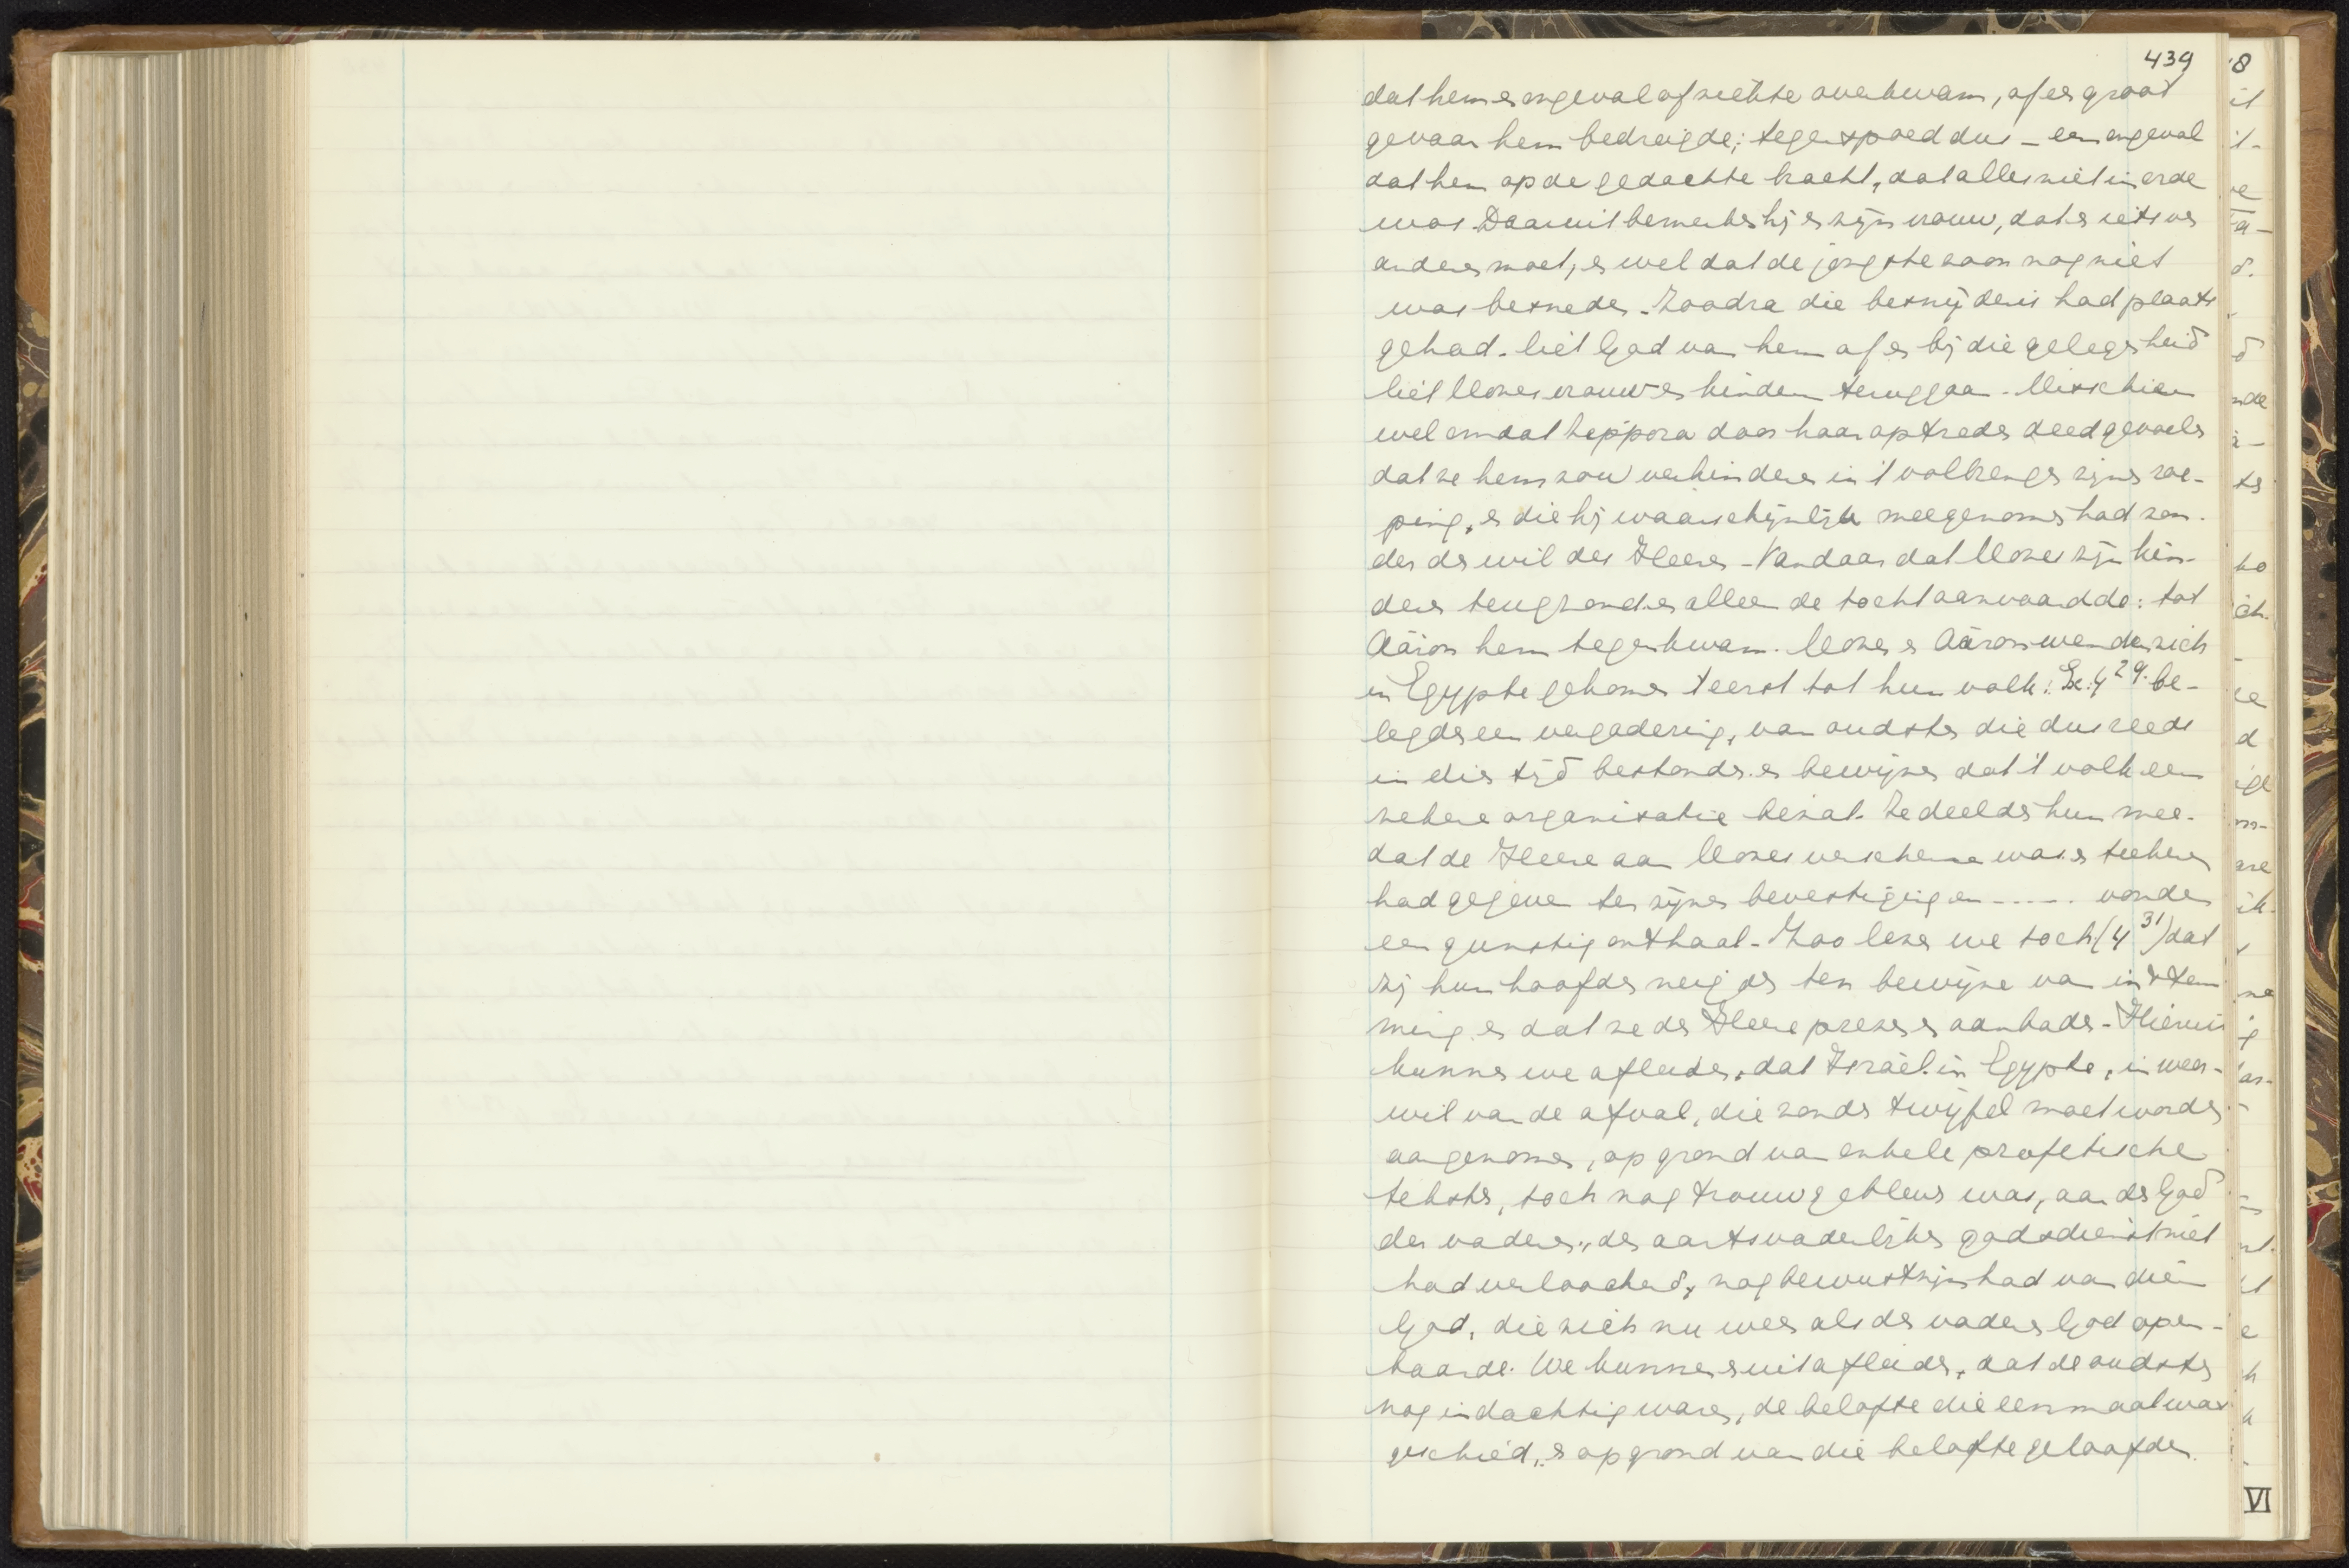 439
dat hem en ongeval of ziekte overkwam, of en groot
gevaar hem bedreigde; tegenspoed dus – een ongeval
dat hem op de gedachte bracht, dat alles niet in orde
was. Daaruit bemerkte hij en zijn vrouw, dat er iets ver
anderen moet, en wel dat de jongste zoon nog niet
was besneden. Zoodra die besnijdenis had plaats
gehad. liet God van hem af en bij die gelegenheid
liet Mozes vrouw en kinderen teruggaan. Misschien
wel omdat Zippora door haar optreden deed gevoelen
dat ze hem zou verhinderen in 't volbrengen zijner roe-
ping, en die hij waarschijnlijk meegenomen had zon-
der de wil des Heeren – Vandaar dat Mozes zijn kin-
deren terugzond en alleen de tocht aanvaardde: tot
Aäron hem tegenkwam. Mozes en Aäron wenden zich
in Egypte gekomen 't eerst tot hun volk: Ex: 4 29. be-
legden een vergadering, van oudsten die dus reeds
in die tijd bestonden. en bewijzen dat 't volk een
zekere organisatie bezat. Ze deelden hun mee.
dat de Heere aan Mozes verschenen was en teekenen
had gegeven ter zijner bevestiging en ----- vonden
een gunstig onthaal. Zoo lezen we toch (4 31) dat
zij hun hoofden neigden ten bewijze van instem
ming. en dat ze de Heere prezen en aanbaden – Hieruit
kunnen we afleiden, dat Israël in Egypte, in weer-
wil van de afval, die zonder twijfel moet worden
aangenomen, op grond van enkele profetische
teksten, toch nog trouw gebleven was, aan de God
der vaderen, de aartsvaderlijke godsdienst niet
had verloochend, nog bewustzijn had van dien
God, die zich nu weer als der vaderen God open-
baarde. We kunnen er uit afleiden, dat de oudsten
nog indachtig waren, de belofte die eenmaal was
geschied, en op grond van die belofte geloofden.
VI